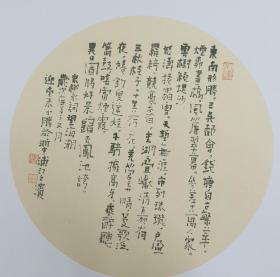 東南形勝三吳都會錢塘自古繁華
煙柳畫橋風簾翠幕參差十萬人家
雲樹繞堤沙
怒濤捲霜雪天塹無涯市列珠璣戶盈
羅綺競豪奢重湖疊巘清嘉有
三秋桂子十里荷花羌管弄晴菱歌泛
夜嬉嬉釣叟蓮娃千騎擁高牙乘醉聽
簫鼓吟賞煙霞
異日圖將好景歸去鳳池誇
柳永詞望海潮
浦江之濱